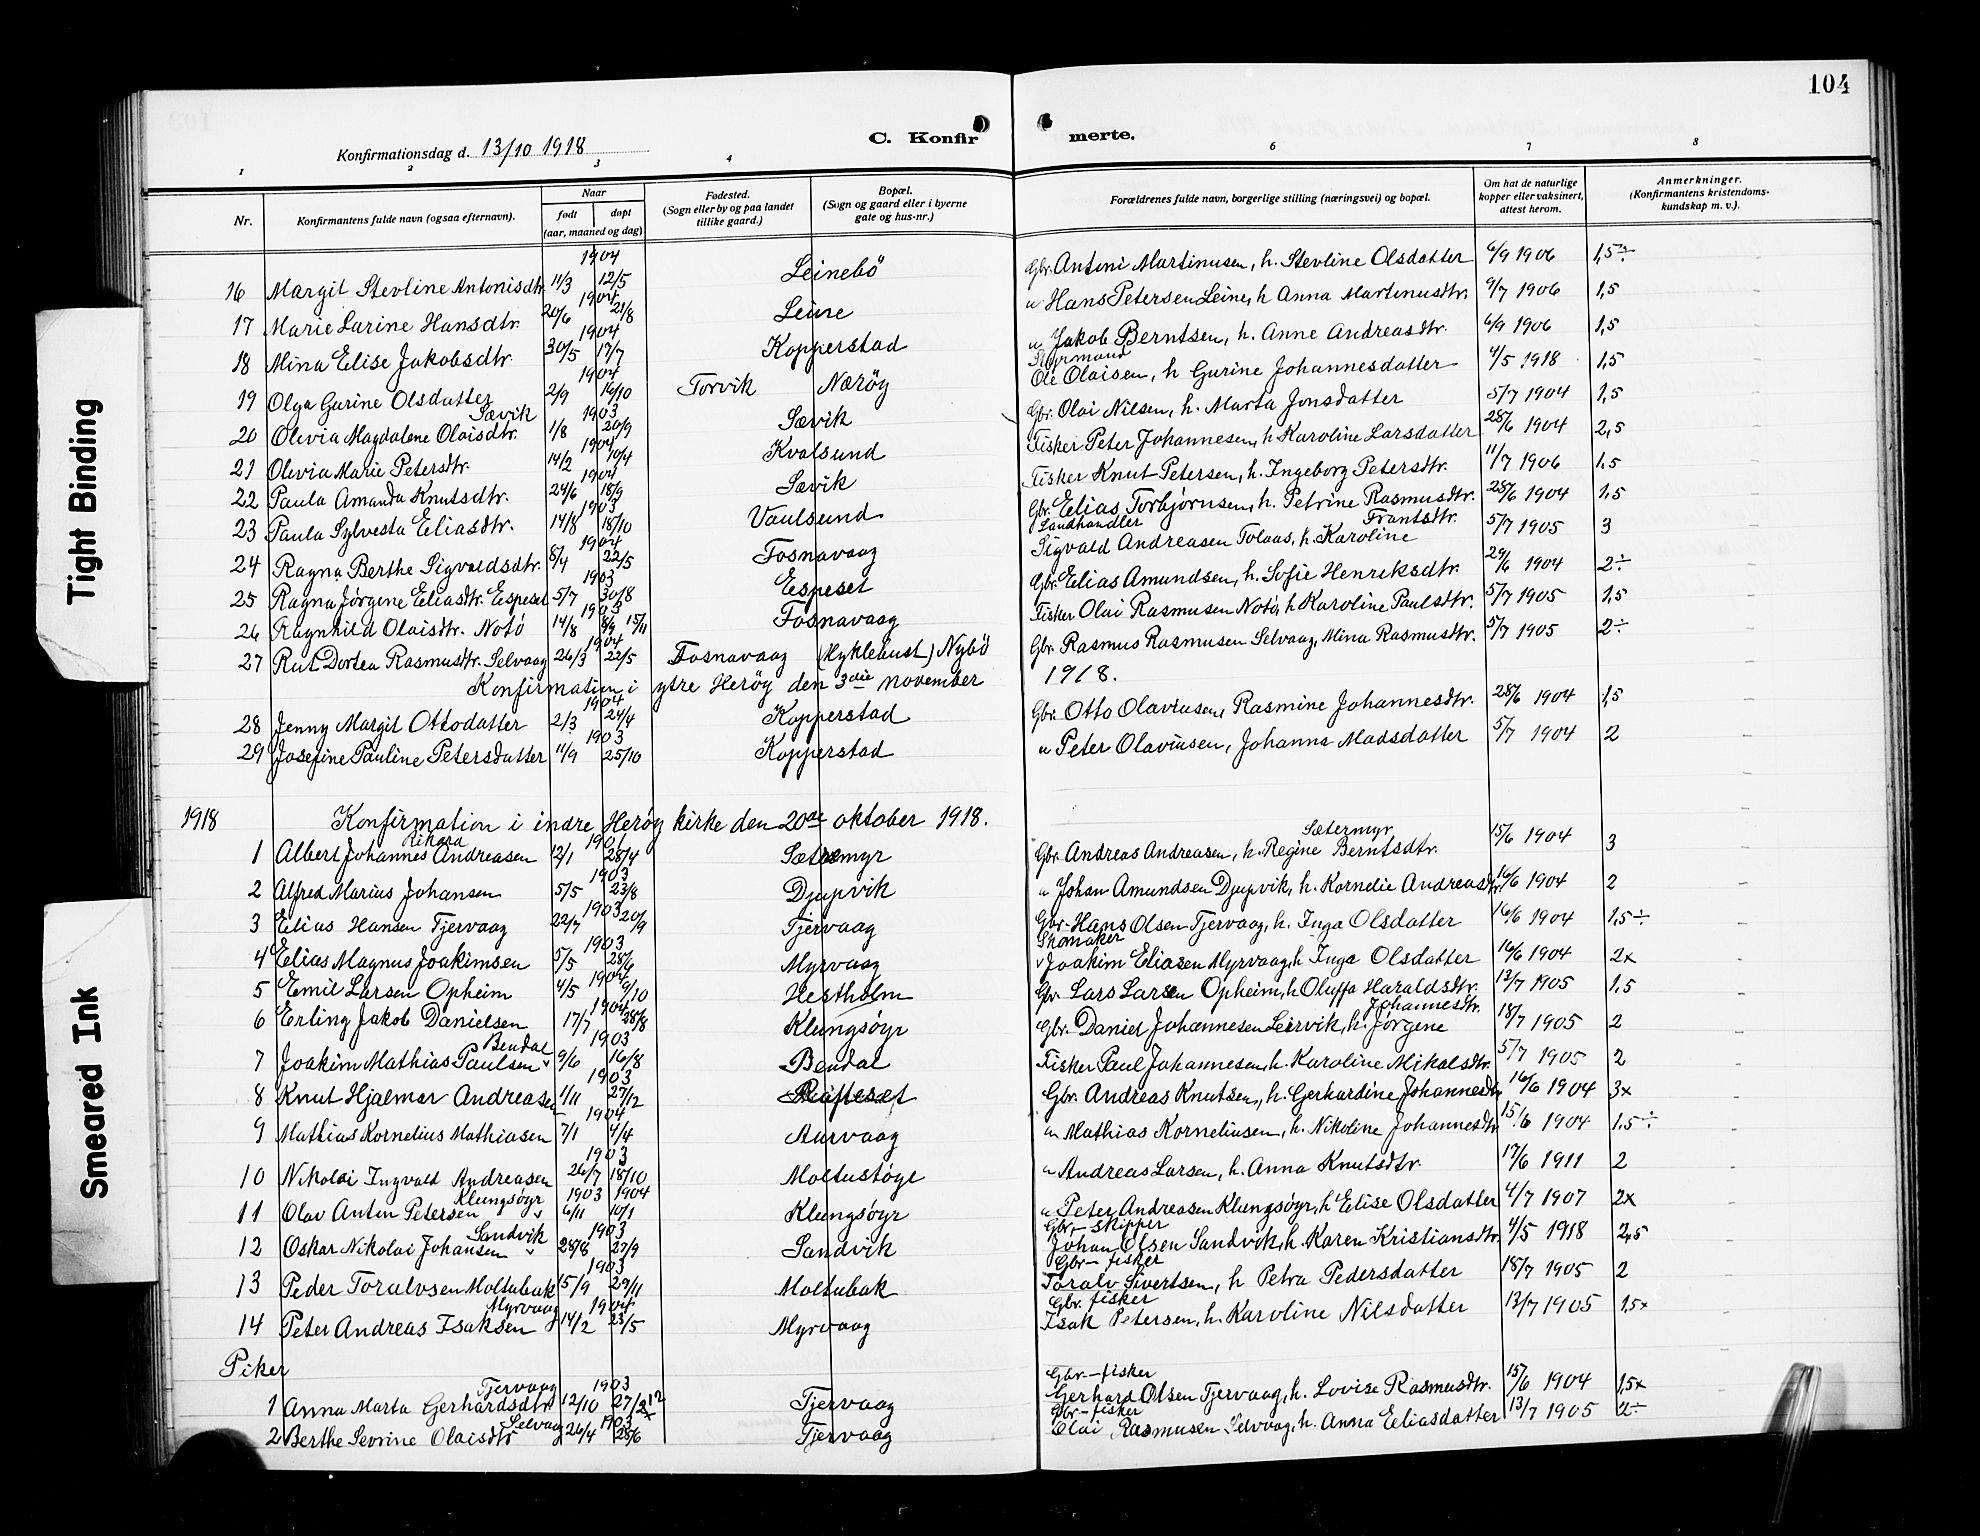 104
Konfirmationsdag d. 13/10 1918
C. Konfirmerte.
1 2 3 4 6 7 8
Nr.
Konfirmantens fulde navn (ogsaa efternavn).
Naar
født
døpt
(aar, maaned og dag)
Fødested.
(Sogn eller by og paa landet
tillike gaard.)
Bopæl.
(Sogn og gaard eller i byerne
gate og hus-nr.)
Forældrenes fulde navn, borgerlige stilling (næringsvei) og bopæl.
Om hat de naturlige
kopper eller vaksinert,
attest herom.
Anmerkninger.
(Konfirmantens kristendoms-
kundskap m. v.).
1904
16 Margit Stevline Antonisdtr. 11/3 12/5 Leinebö Gbr. Antoni Martinusen, h. Stevline Olsdatter 6/9 1906 1,5÷
1904
17 Marie Larine Hansdtr. 20/6 21/8 Leine " Hans Petersen Leine, h Anna Martinusdtr. 9/7 1906 1,5
1904
18 Mina Elise Jakobsdtr. 30/5 17/7 Kopperstad " Jakob Berntsen, h. Anne Andreasdtr. 6/9 1906 1,5
1904 Styrmand
19 Olga Gurine Olsdatter 2/9 16/10 Torvik Nærøy Ole Olaisen, h Gurine Johannesdatter 4/5 1918 1,5
Sævik 1903
20 Olevia Magdalene Olaisdtr. 1/8 20/9 Sævik Gbr. Olai Nilsen, h. Marta Jonsdatter 5/7 1904 1,5
1904
21 Olevia Marie Petersdtr. 14/2 10/4 Kvalsund Fisker Peter Johannesen, h Karoline Larsdatter 28/6 1904 2,5
1904
22 Paula Amanda Knutsdtr. 24/6 18/9 Sævik Fisker Knut Petersen, h. Ingeborg Petersdtr. 11/7 1906 1.5
1903
23 Paula Sylvesta Eliasdtr. 14/8 18/10 Vaulsund Gbr. Elias Torbjørnsen, h. Petrine Rasmusdtr. 28/6 1904 1.5
1904 Landhandler Frantsdtr.
24 Ragna Berthe Sigvaldsdtr. 8/4 22/5 Fosnavaag Sigvald Andreasen Tolaas, h. Karoline 5/7 1905 3
1903
25 Ragna Jørgene Eliasdtr. Espeset 5/7 30/8 Espeset Gbr. Elias Amundsen, h. Sofie Henriksdtr. 29/6 1904 2÷
1903
26 Ragnhild Olaisdtr. Notö 14/8 8/9 15/11 Fosnavaag Fisker Olai Rasmusen Notö, h Karoline Paulsdtr. 5/7 1905 1,5
1904
27 Rut Dortea Rasmusdtr. Selvaag 26/3 22/5 Fosnavaag (Myklebust) Nybö Gbr. Rasmus Rasmusen Selvaag, Mina Rasmusdtr. 5/7 1905 2÷
Konfirmation i ytre Herøy den 3die november 1918.
1904
28 Jenny Margit Ottodatter 2/3 24/4 Kopperstad Gbr. Otto Olavinsen, Rasmine Johannesdtr. 28/6 1904 1,5
1903
29 Josefine Pauline Petersdatter 11/9 25/10 Kopperstad " Peter Olavinsen, Johanna Madsdatter 5/7 1904 2
1918 Konfirmation i indre Herøy kirke den 20de oktober 1918.
Rikard 1901 Sætermyr
1 Albert Johannes Andreasen 12/1 28/4 Sætremyr Gbr. Andreas Andreasen, h. Regine Berntsdtr. 15/6 1904 3
1903
2 Alfred Marius Johansen 5/5 23/8 Djupvik " Johan Amundsen Djupvik, h. Kornelie Andreasdtr. 16/6 1904 2
1903
3 Elias Hansen Tjervaag 22/7 20/9 Tjervaag Gbr. Hans Olsen Tjervaag, h. Inga Olsdatter 16/6 1904 1.5÷
1903 Skomaker
4 Elias Magnus Joakimsen 5/5 28/6 Myrvaag Joakim Eliasen Myrvaag, h Inga Olsdatter 16/6 1904 2x
1904
5 Emil Larsen Opheim 4/5 9/10 Hestholm Gbr Lars Larsen Opheim, h Oluffa Haraldsdtr. 13/7 1905 1.5
1904 Johannesdtr.
6 Erling Jakob Danielsen 17/7 28/8 Klungsøyr Gbr. Daniel Johannesen Leirvik, h. Jørgene 18/7 1905 2
Bendal 1903
7 Joakim Mathias Paulsen 9/6 16/8 Bendal Fisker Paul Johannesen, h. Karoline Mikalsdtr. 5/7 1905 2
1903
8 Knut Hjalmar Andreasen 1/11 27/12 Gbr. Andreas Knutsen, h. Gerhardine Johannesdtr 16/6 1904 3x
1904
9 Mathias Kornelius Mathiasen 7/1 4/4 Aurvaag " Mathias Korneliusen, h. Nikoline Johannesdtr 15/6 1904 1.5÷
1903
10 Nikolai Ingvald Andreasen 26/7 18/10 Moltustøyl " Andreas Larsen, h. Anna Knutsdtr. 17/6 1911 2
Klungsøyr 1903 1904
11 Olav Anton Petersen 6/11 10/1 Klungsøyr " Peter Andreasen Klungsøyr, h Elise Olsdatter 4/7 1907 2x
Sandvik 1903 Gbr.- skipper
12 Oskar Nikolai Johansen 28/8 27/9 Sandvik Johan Olsen Sandvik, h. Karen Kristiansdtr. 4/5 1918 2,5
1903 Gbr- fisker
13 Peder Toralvsen Moltubak 15/9 29/11 Moltubak Toralv Sivertsen, h Petra Pedersdatter 18/7 1905 2
Myrvaag 1904 Gbr. fisker
14 Peter Andreas Isaksen 14/2 23/5 Myrvaag Isak Petersen, h. Karoline Nilsdatter 13/7 1905 1,5x
Piker
Tjervaag 1903 Gbr-fisker
1 Anna Marta Gerhardsdtr. 12/10 27/12 Tjervaag Gerhard Olsen Tjervaag, h. Lovise Rasmusdtr. 15/6 1904 1,5x
Selvaag 1903 Gbr-fisker
2 Berthe Sevrine Olaisdtr 26/4 28/6 Tjervaag Olai Rasmusen Selvaag, h. Anna Eliasdatter 13/7 1905 2÷
Tight Binding
Smeared Ink